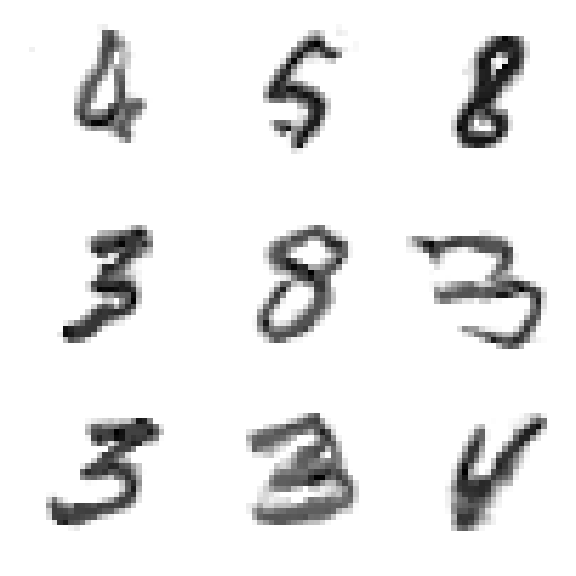 4 5 8
3 8 3
3 3 4